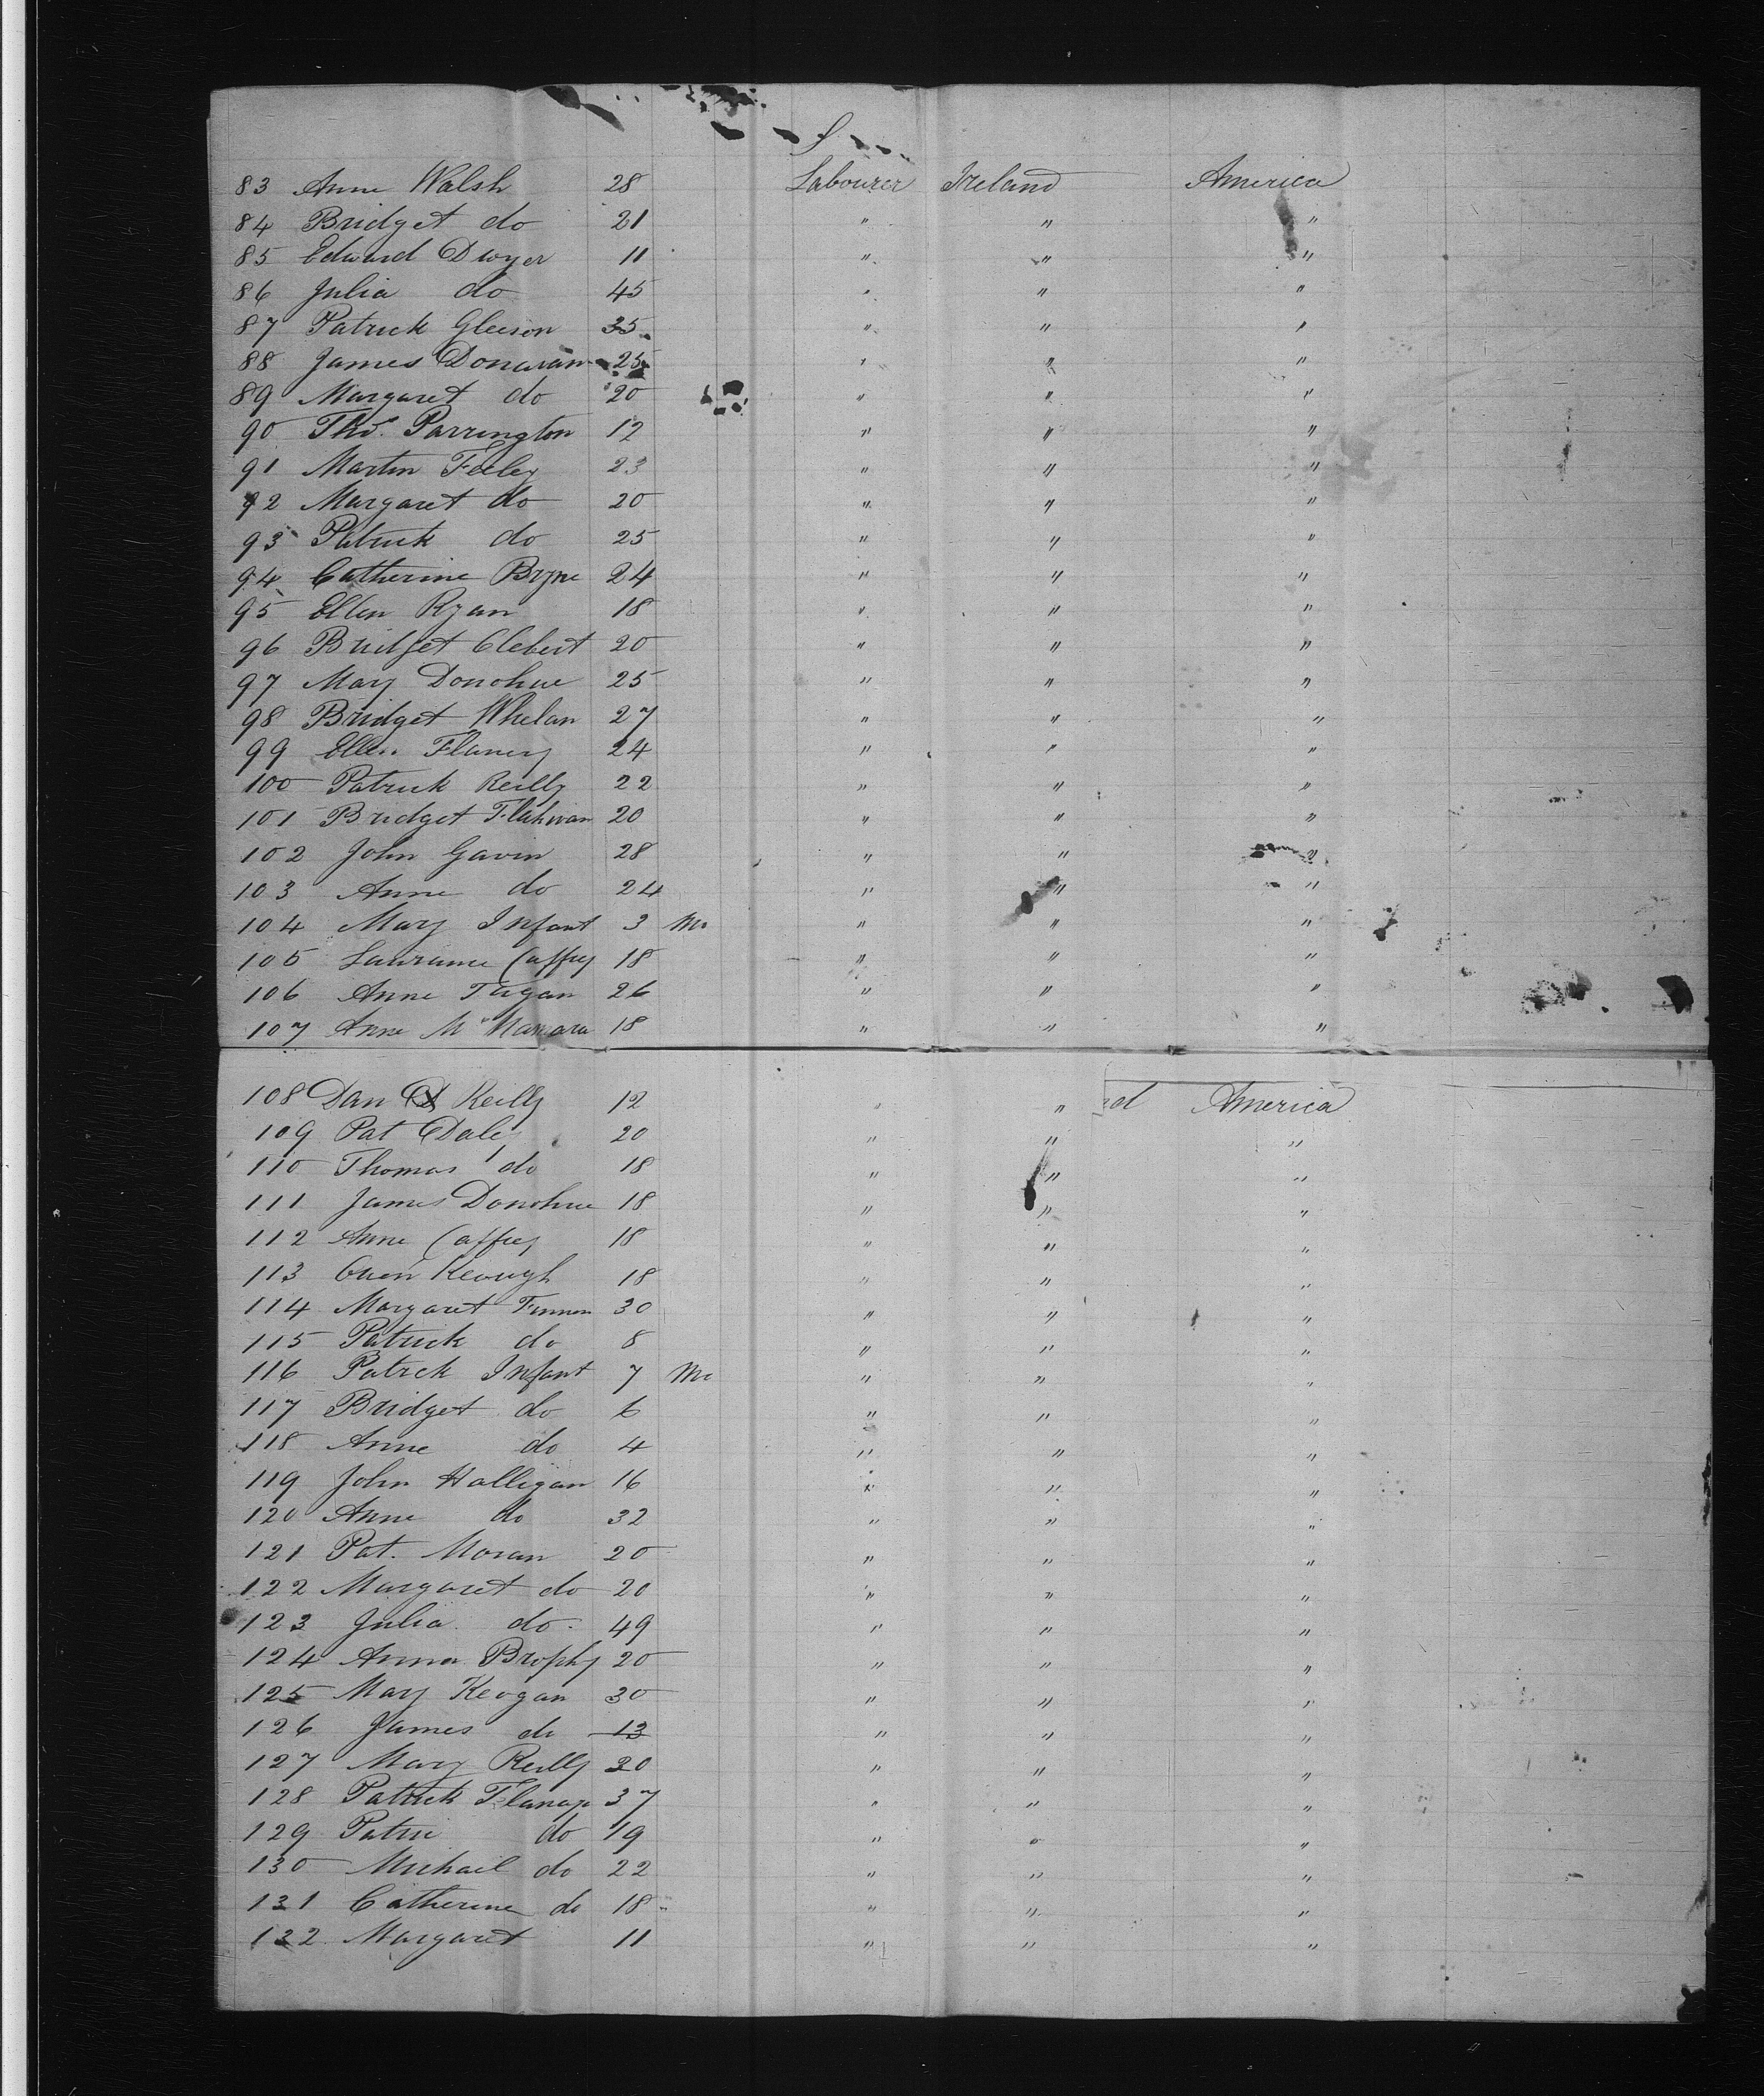 83 Anne Walsh 28 Labourer Ireland America
84 Bridget do 21 " " "
85 Edward Dwyer 11 " " "
86 Julia do 45 " " "
87 Patrick Gleeson 35 " " "
88 James Donavan 25 " " "
89 Margaret do 20 " " "
90 Thos. Parrington 12 " " "
91 Martin Feeley 23 " " "
92 Margaret do 20 " " "
93 Patrick do 25 " " "
94 Catherine Bryne 24 " " "
95 Ellen Ryan 18 " " "
96 Bridget Clebert 20 " " "
97 Mary Donohue 25 " " "
98 Bridget Whelan 27 " " "
99 Ellen Flanery 24 " " "
100 Patrick Reilly 22 " " "
101 Bridget 20 " " "
102 John Gavin 28 " " "
103 Anne do 24 " " "
104 Mary Infant 3 Mo " " "
105 Laurance Caffrey 18 " " "
106 Anne 26 " " "
107 Anne McNamara 18 " " "
108 Dan Reilly 12 " " America
109 Pat Daley 20 " " "
110 Thomas do 18 " " "
111 James Donohue 18 " " "
112 Anne Caffrey 18 " " "
113 Owen Keough 18 " " "
114 Margaret Finnen 30 " " "
115 Patrick do 8 " " "
116 Patrck Infant 7 Mo " " "
117 Bridget do 6 " " "
118 Anne do 4 " " "
119 John Halligan 16 " " "
120 Anne do 32 " " "
121 Pat. Moran 20 " " "
122 Margaret do 20 " " "
123 Julia do 49 " " "
124 Anna Brophy 20 " " "
125 Mary Keogan 30 " " "
126 James do 13 " " "
127 Mary Reilly 30 " " "
128 Patrick Flanag 37 " " "
129 do 19 " " "
130 Michael do 22 " " "
131 Catherine do 18 " " "
132 Margaret 11 " " "